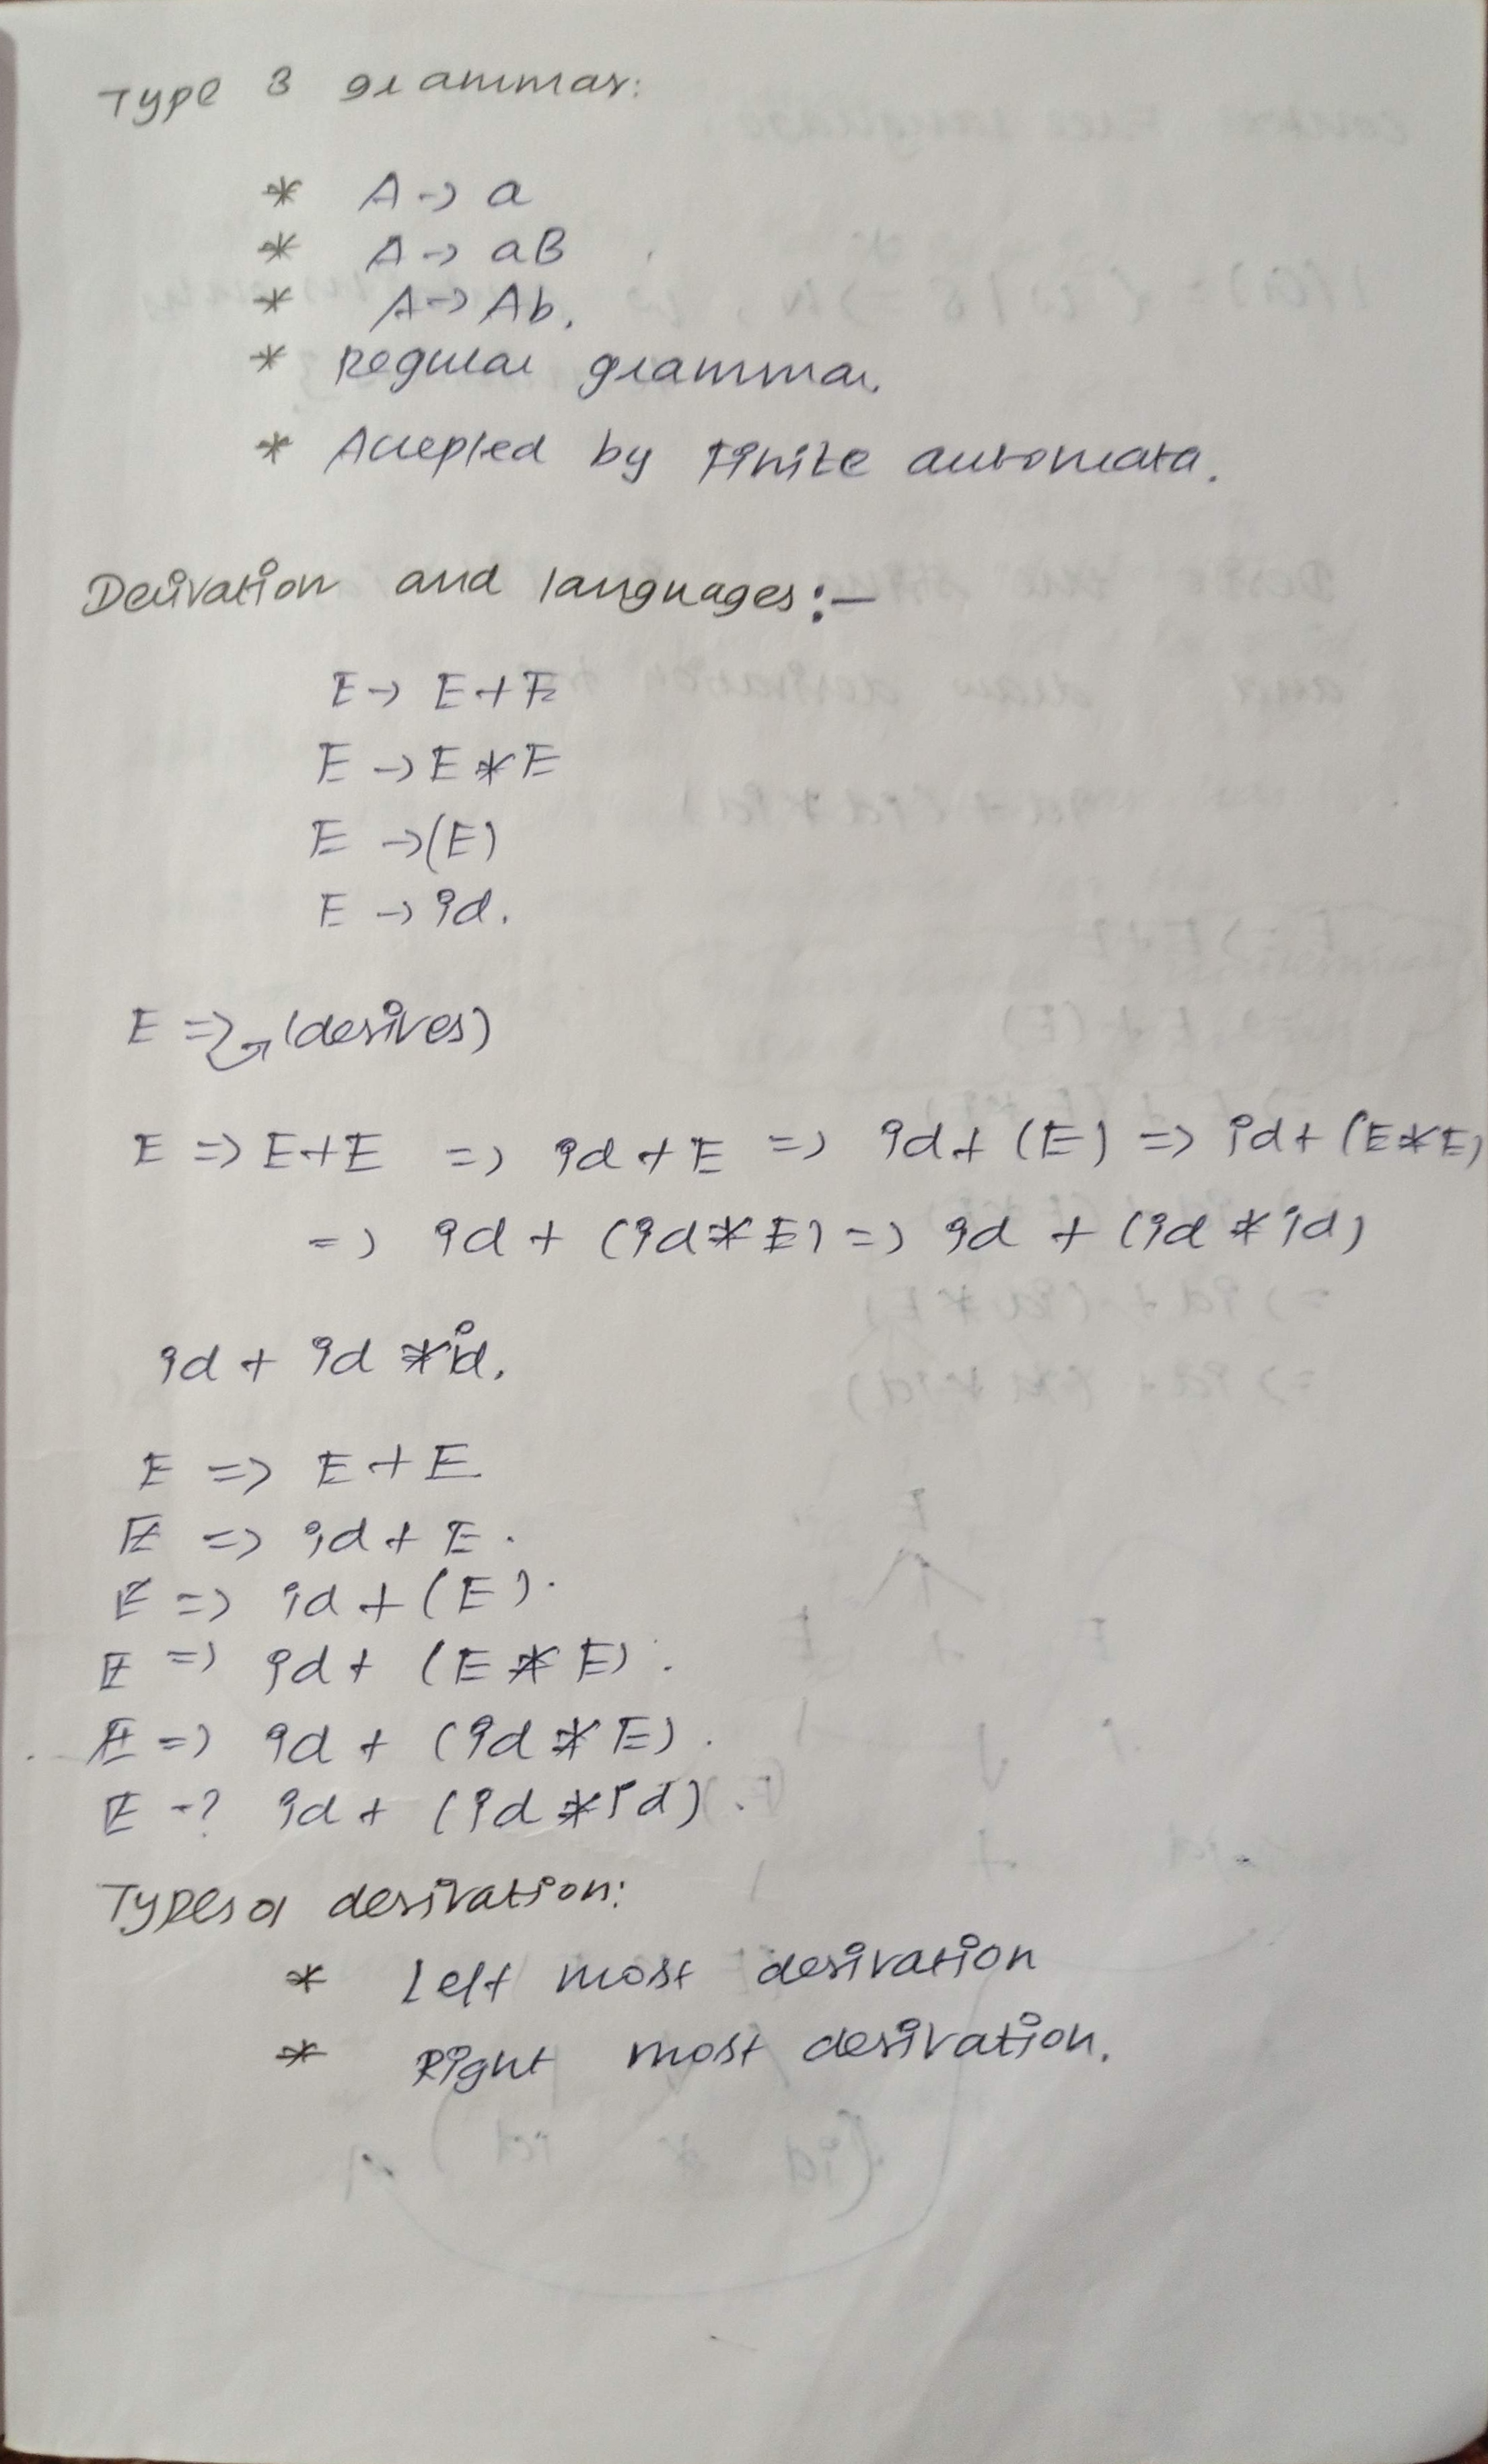 Type 3 grammar:
* A -> a
* A -> aB
* A -> Ab.
* Regular grammar.
* Accepted by Finite automata.
Derivation and languages:-
E -> E+E
E -> E*E
E -> (E)
E -> id.
E => (derives)
E => E+E => id+E => id+(E) => id+(E*E)
=> id + (id*E) => id + (id*id)
id + id *id.
E => E+E
E => id+E.
E => id+(E).
E => id+ (E*E).
E => id + (id*E).
E -? id+ (id*id).
Types of derivation:
* Left most derivation
* Right most derivation.